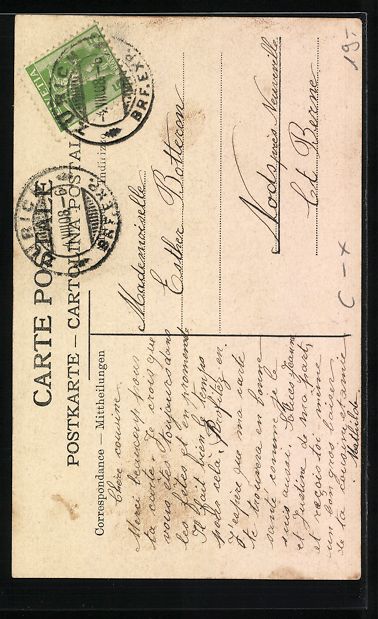 CARTE POSTALE
POSTKARTE — CARTOLINA POSTALE
Correspondance — Mittheilungen
HELVETIA
ZÜRICH
-4.VIII.08.-6
BRF.EXP.
ZÜRICH
-4.VIII.08.-6
BRF.EXP.
Mademoiselle
Esther Botteron
Nods près Neuveville
Ct. Berne
Chère cousine.
Merci beaucoup pour
ta carte. Je crois que
vous êtes toujours dans
les fêtes et en promenade
Il fait bien le temps
pour cela. Profitez en.
J'espère que ma carte
te trouvera en bonne
santé comme je le
suis aussi. Jeanne
et Justine de ma part,
et reçois toi même
un bon gros baiser
de ta cousine et amie
Mathilde.
C - x
19.-